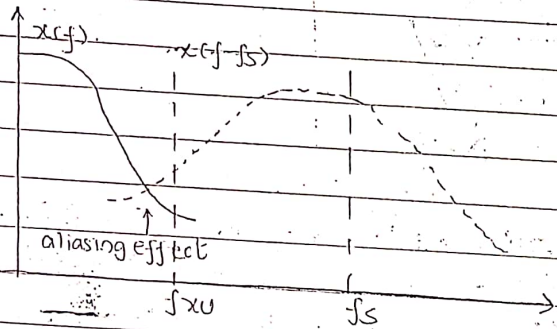 x(f)
x(f-fs)
aliasing effect
fxu
fs